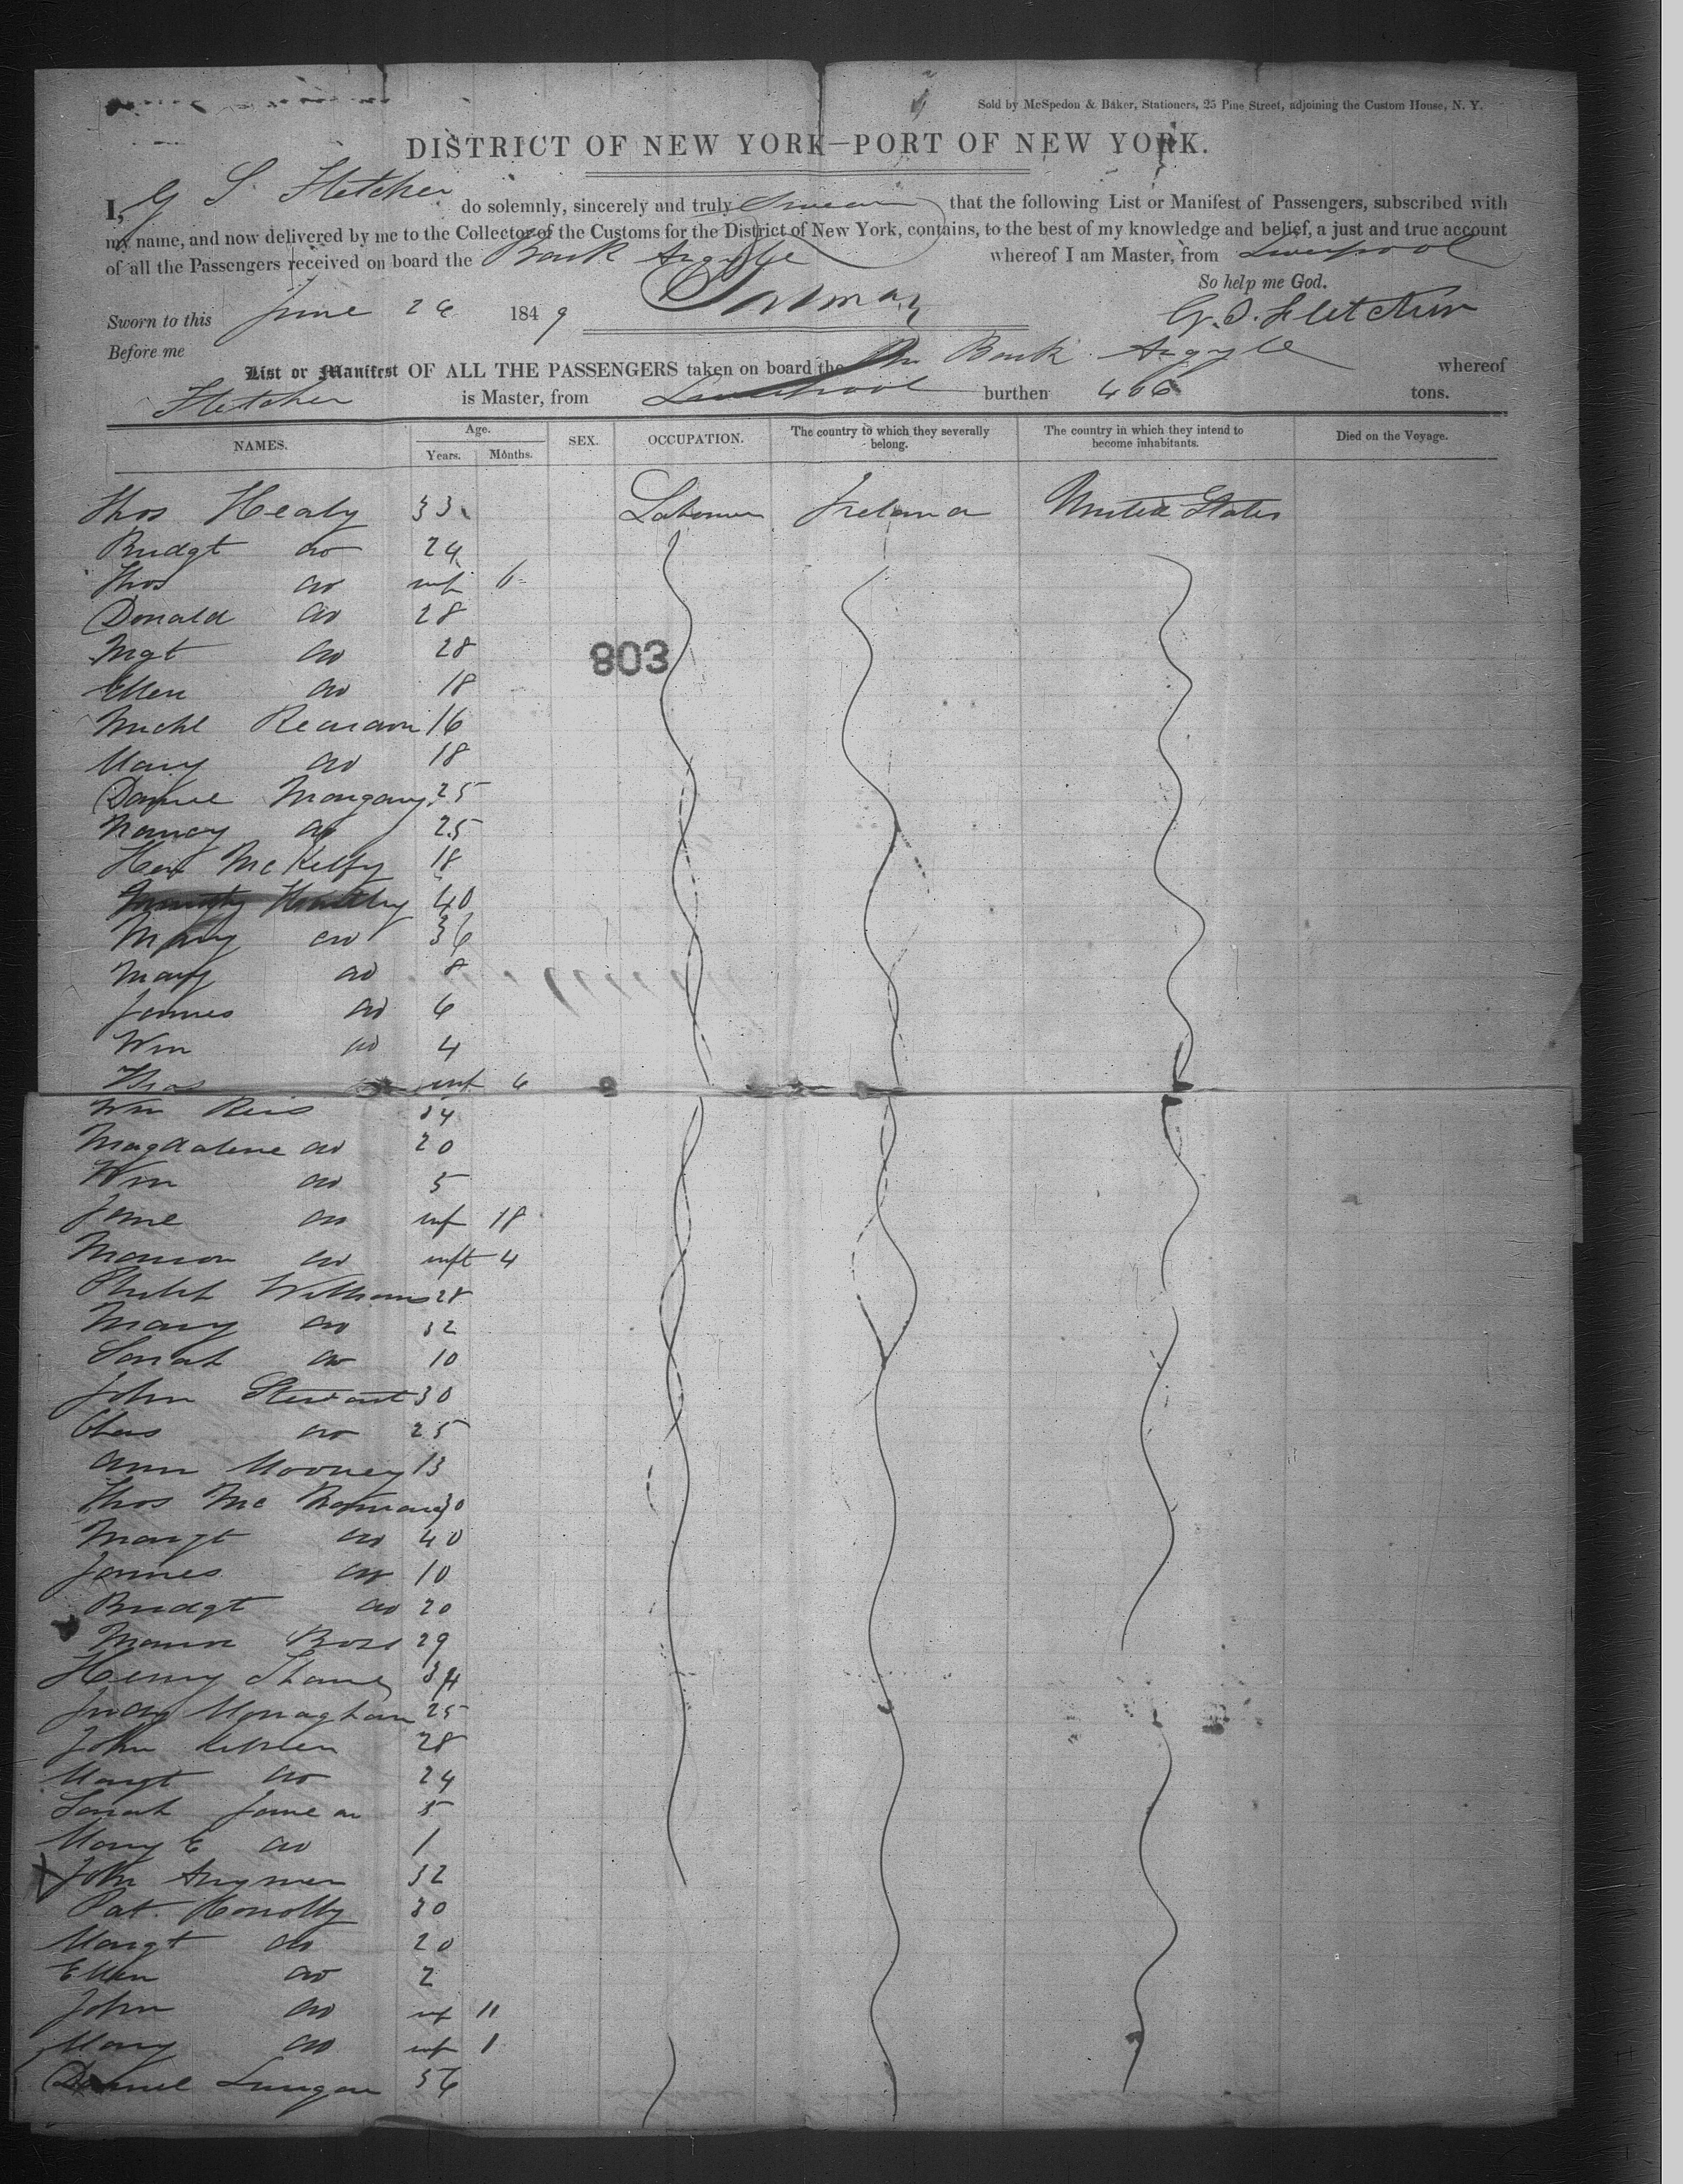 Sold by McSpedon & Baker, Stationers, 25 Pine Street, adjoining the Custom House, N. Y.
DISTRICT OF NEW YORK—PORT OF NEW YORK.
I, G S. Fletcher do solemnly, sincerely and truly Swear that the following List or Manifest of Passengers, subscribed with
my name, and now delivered by me to the Collector of the Customs for the District of New York, contains, to the best of my knowledge and belief, a just and true account
of all the Passengers received on board the Bark Argyle whereof I am Master, from Liverpool
So help me God.
Sworn to this June 26 1849 G. S. Fletcher
Before me
List or Manifest OF ALL THE PASSENGERS taken on board the Bark Argyle whereof
Fletcher is Master, from Liverpool burthen 466 tons.
NAMES. Age. Years. Months. SEX. OCCUPATION. The country to which they severally belong. The country in which they intend to become inhabitants. Died on the Voyage.
Thos Healy 33 Laborer Ireland United States
Bridgt do 24
Thos do inf 6
Donald do 28
803
Mgt do 28
Ellen do 18
Michl Reardon 16
Mary do 18
Daniel 25
Nancy do 25
McKelfy 18
40
Mary do 36
Mary do 8
James do 6
Wm do 4
Thos inf 6
Wm Reis 34
Magdalene do 20
Wm do 5
Jane do inf 18
Marion do inft 4
Philip Williams 28
Mary do 32
Sarah do 10
John Stewart 30
Chas do 25
Ann Mooney 13
Thos Mc 30
Margt do 40
James do 10
Bridgt do 20
Ross 29
Henry 34
Judy Monaghan 25
John 28
Margt do 24
Sarah Jane do 5
Mary E do 1
John 32
Pat. Conolly 30
Margt do 20
Ellen do 2
John do inf 11
Mary do inf 1
Daniel 56